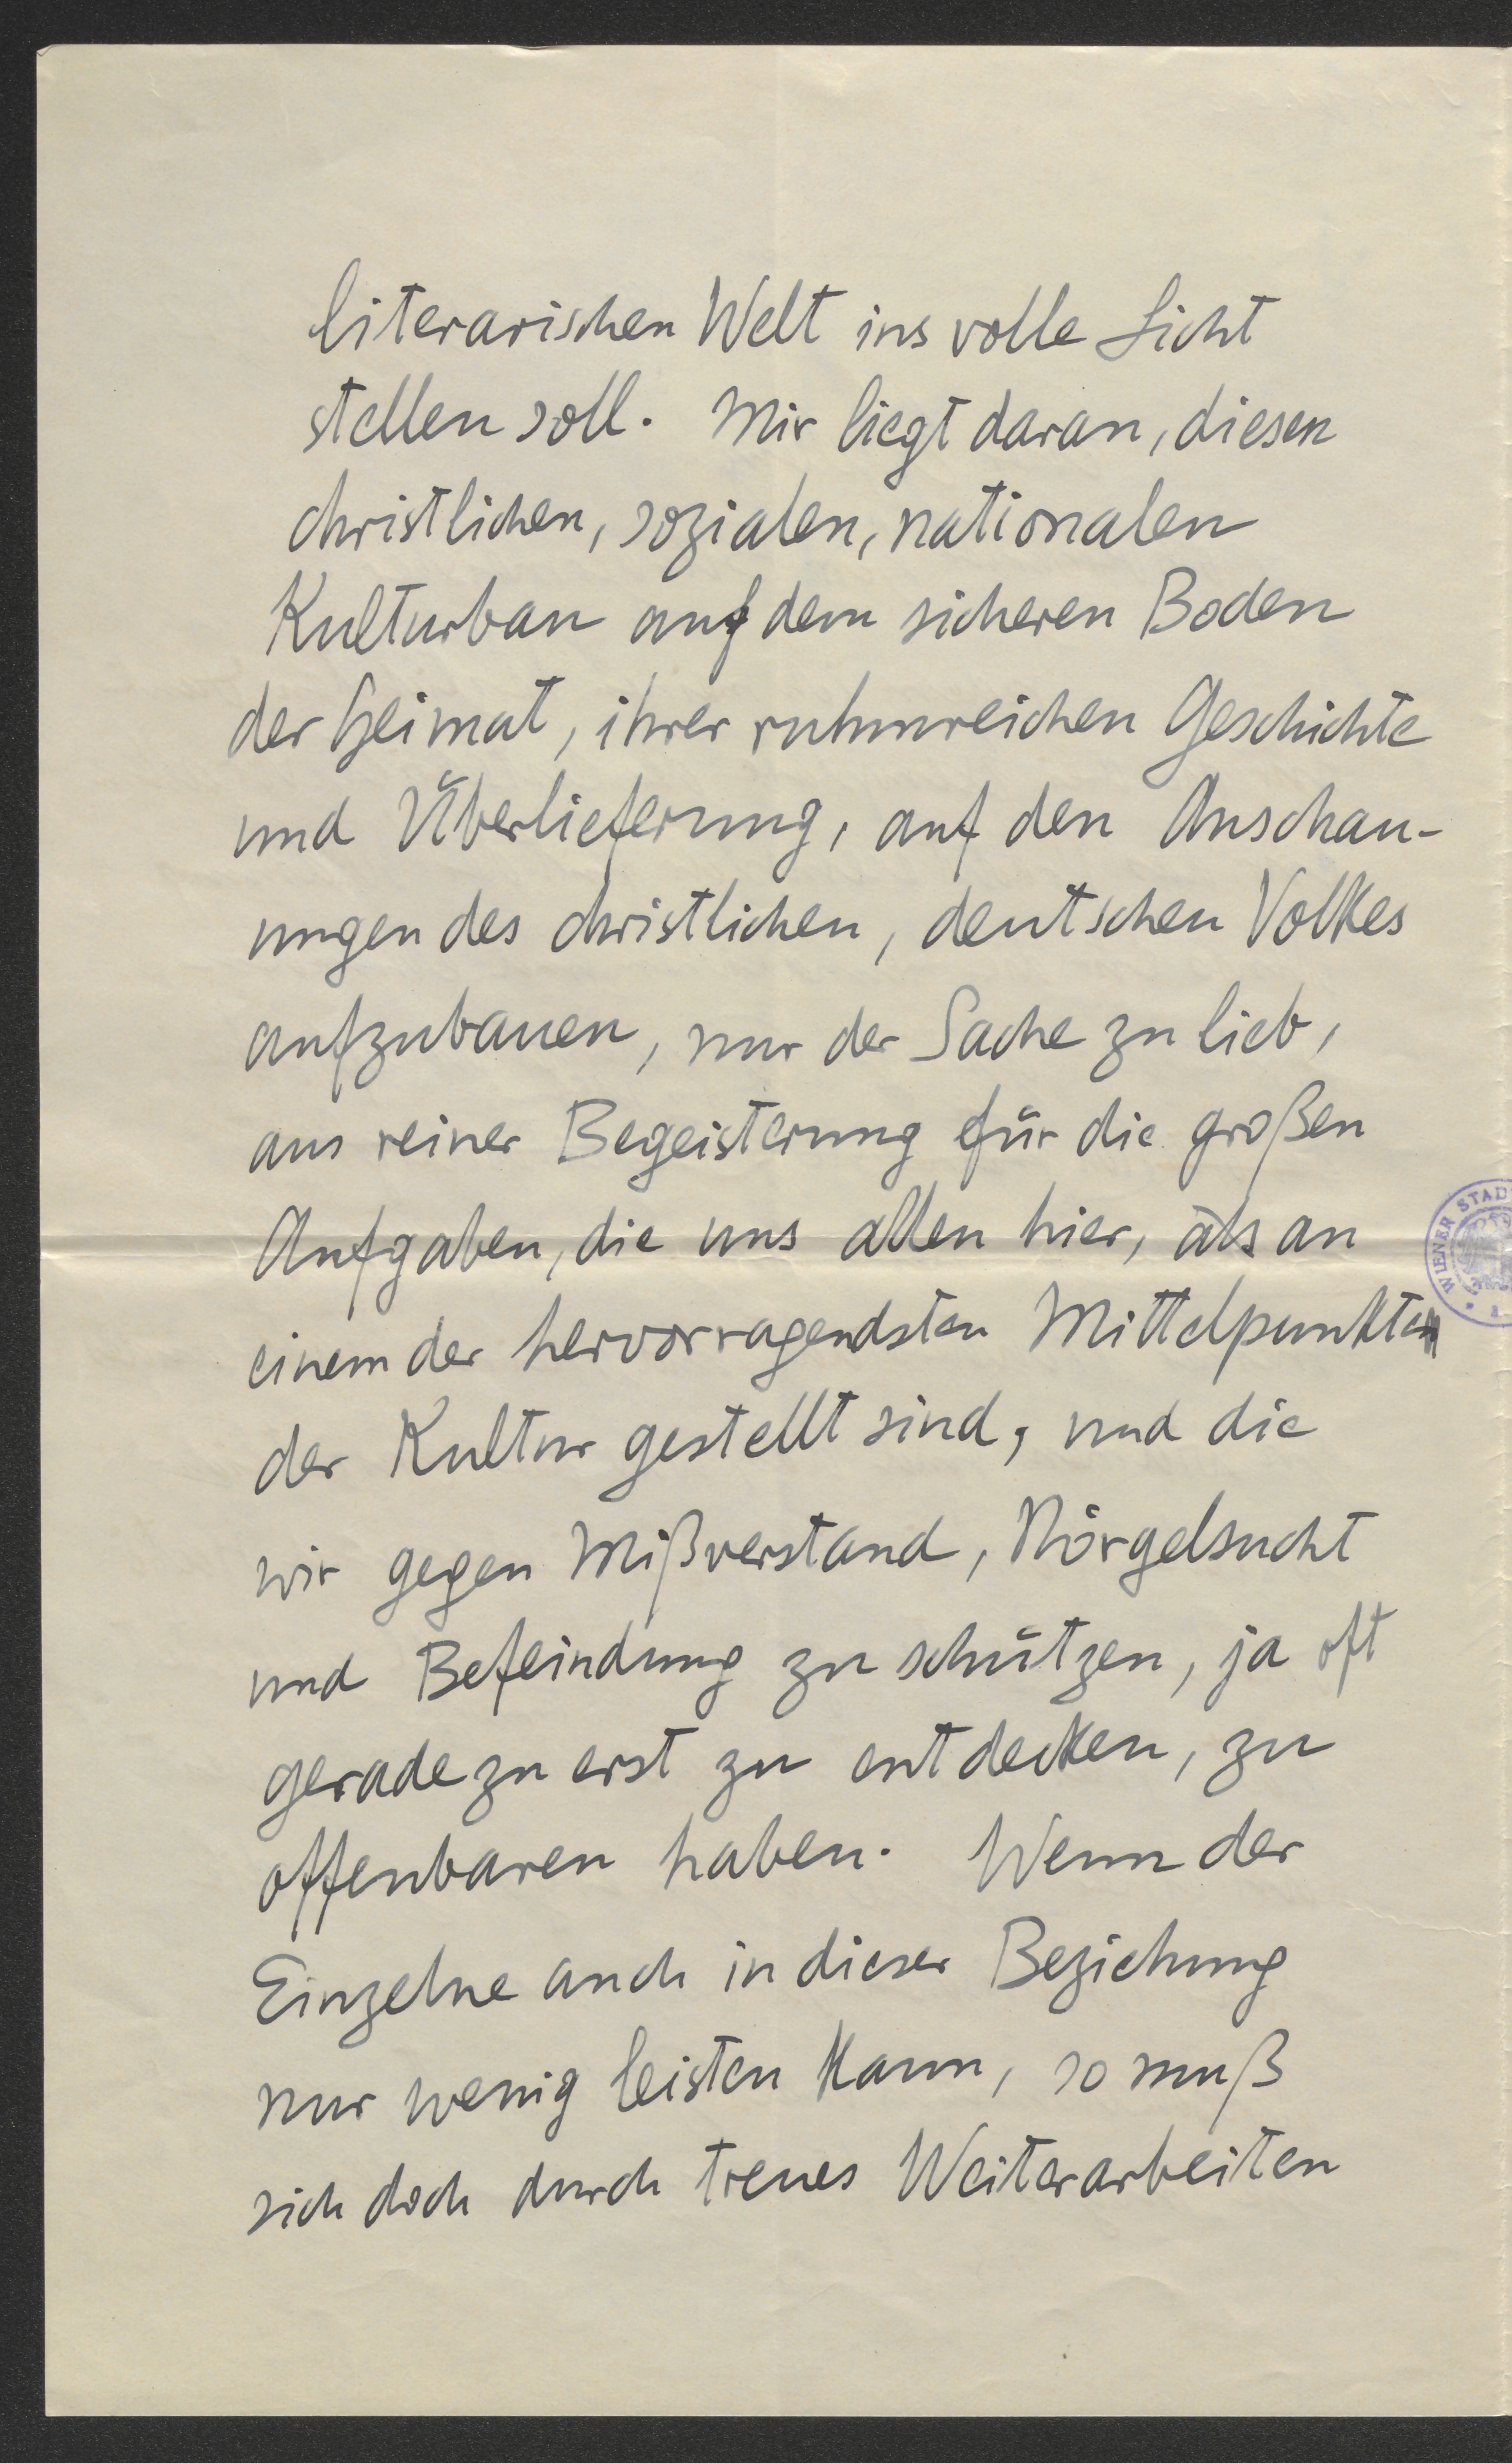 literarischen Welt ins volle Licht
stellen soll. Mir liegt daran, diesen
christlichen, sozialen, nationalen
Kulturbau auf dem sicheren Boden
der Heimat, ihrer ruhmreichen Geschichte
und Überlieferung, auf den Anschau-
ungen des christlichen, deutschen Volkes
aufzubauen, nur der Sache zu lieb,
aus reiner Begeisterung für die großen
Aufgaben, die uns allen hier, als an
einem der hervorragendsten Mittelpunkte
der Kultur gestellt sind, und die
wir gegen Mißverstand, Nörgelsucht
und Befeindung zu schützen, ja oft
geradezu erst zu entdecken, zu
offenbaren haben. Wenn der
Einzelne auch in dieser Beziehung
nur wenig leisten kann, so muß
sich doch durch treues Weiterarbeiten
WIENER STAD